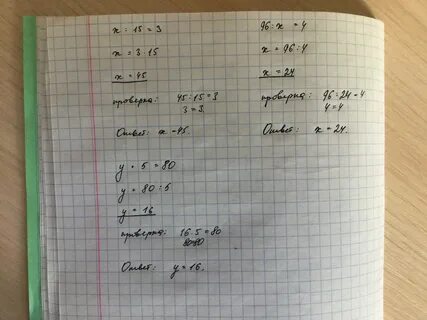 x : 15 = 3
x = 3 · 15
x = 45
проверка: 45 : 15 = 3
3 = 3.
Ответ: x = 45.
96 : x = 4
x = 96 : 4
x = 24
проверка: 96 : 24 = 4
4 = 4.
Ответ: x = 24.
y · 5 = 80
y = 80 : 5
y = 16
проверка: 16 · 5 = 80
80=80
Ответ: y = 16.